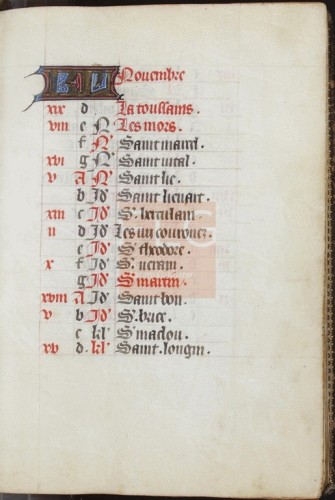 KL Novembre
xix d La toussains.
viii e N Les mors.
f N Saint marcel.
xvi g N Saint vital.
v A N Saint lie.
b Id Saint lienart.
xiii c Id S. herculain.
ii d Id Les iiii couronez.
e Id S. theodore.
x f Id S. verain.
g Id S. martin.
xviii A Id Saint bon.
v b Id S. brice.
c kl S. maclou.
xv d. kl Saint. longin.